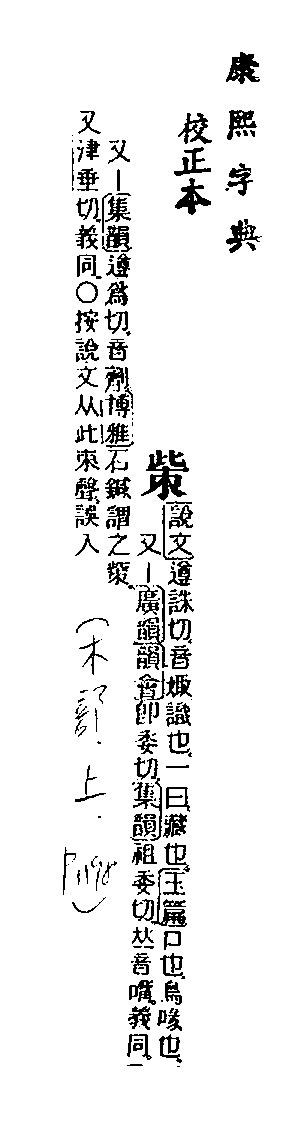 康熙字典
校正本
㭰
說文遵誄切音識也一曰藏也玉篇口也鳥喙也
又丨廣韻韻會卽委切集韻祖委切𠀤音嘴義同
又丨集韻遵爲切音劑博雅石鍼謂之㭰
又津垂切義同○按說文从此朿聲誤入
(木部.上.P1198)